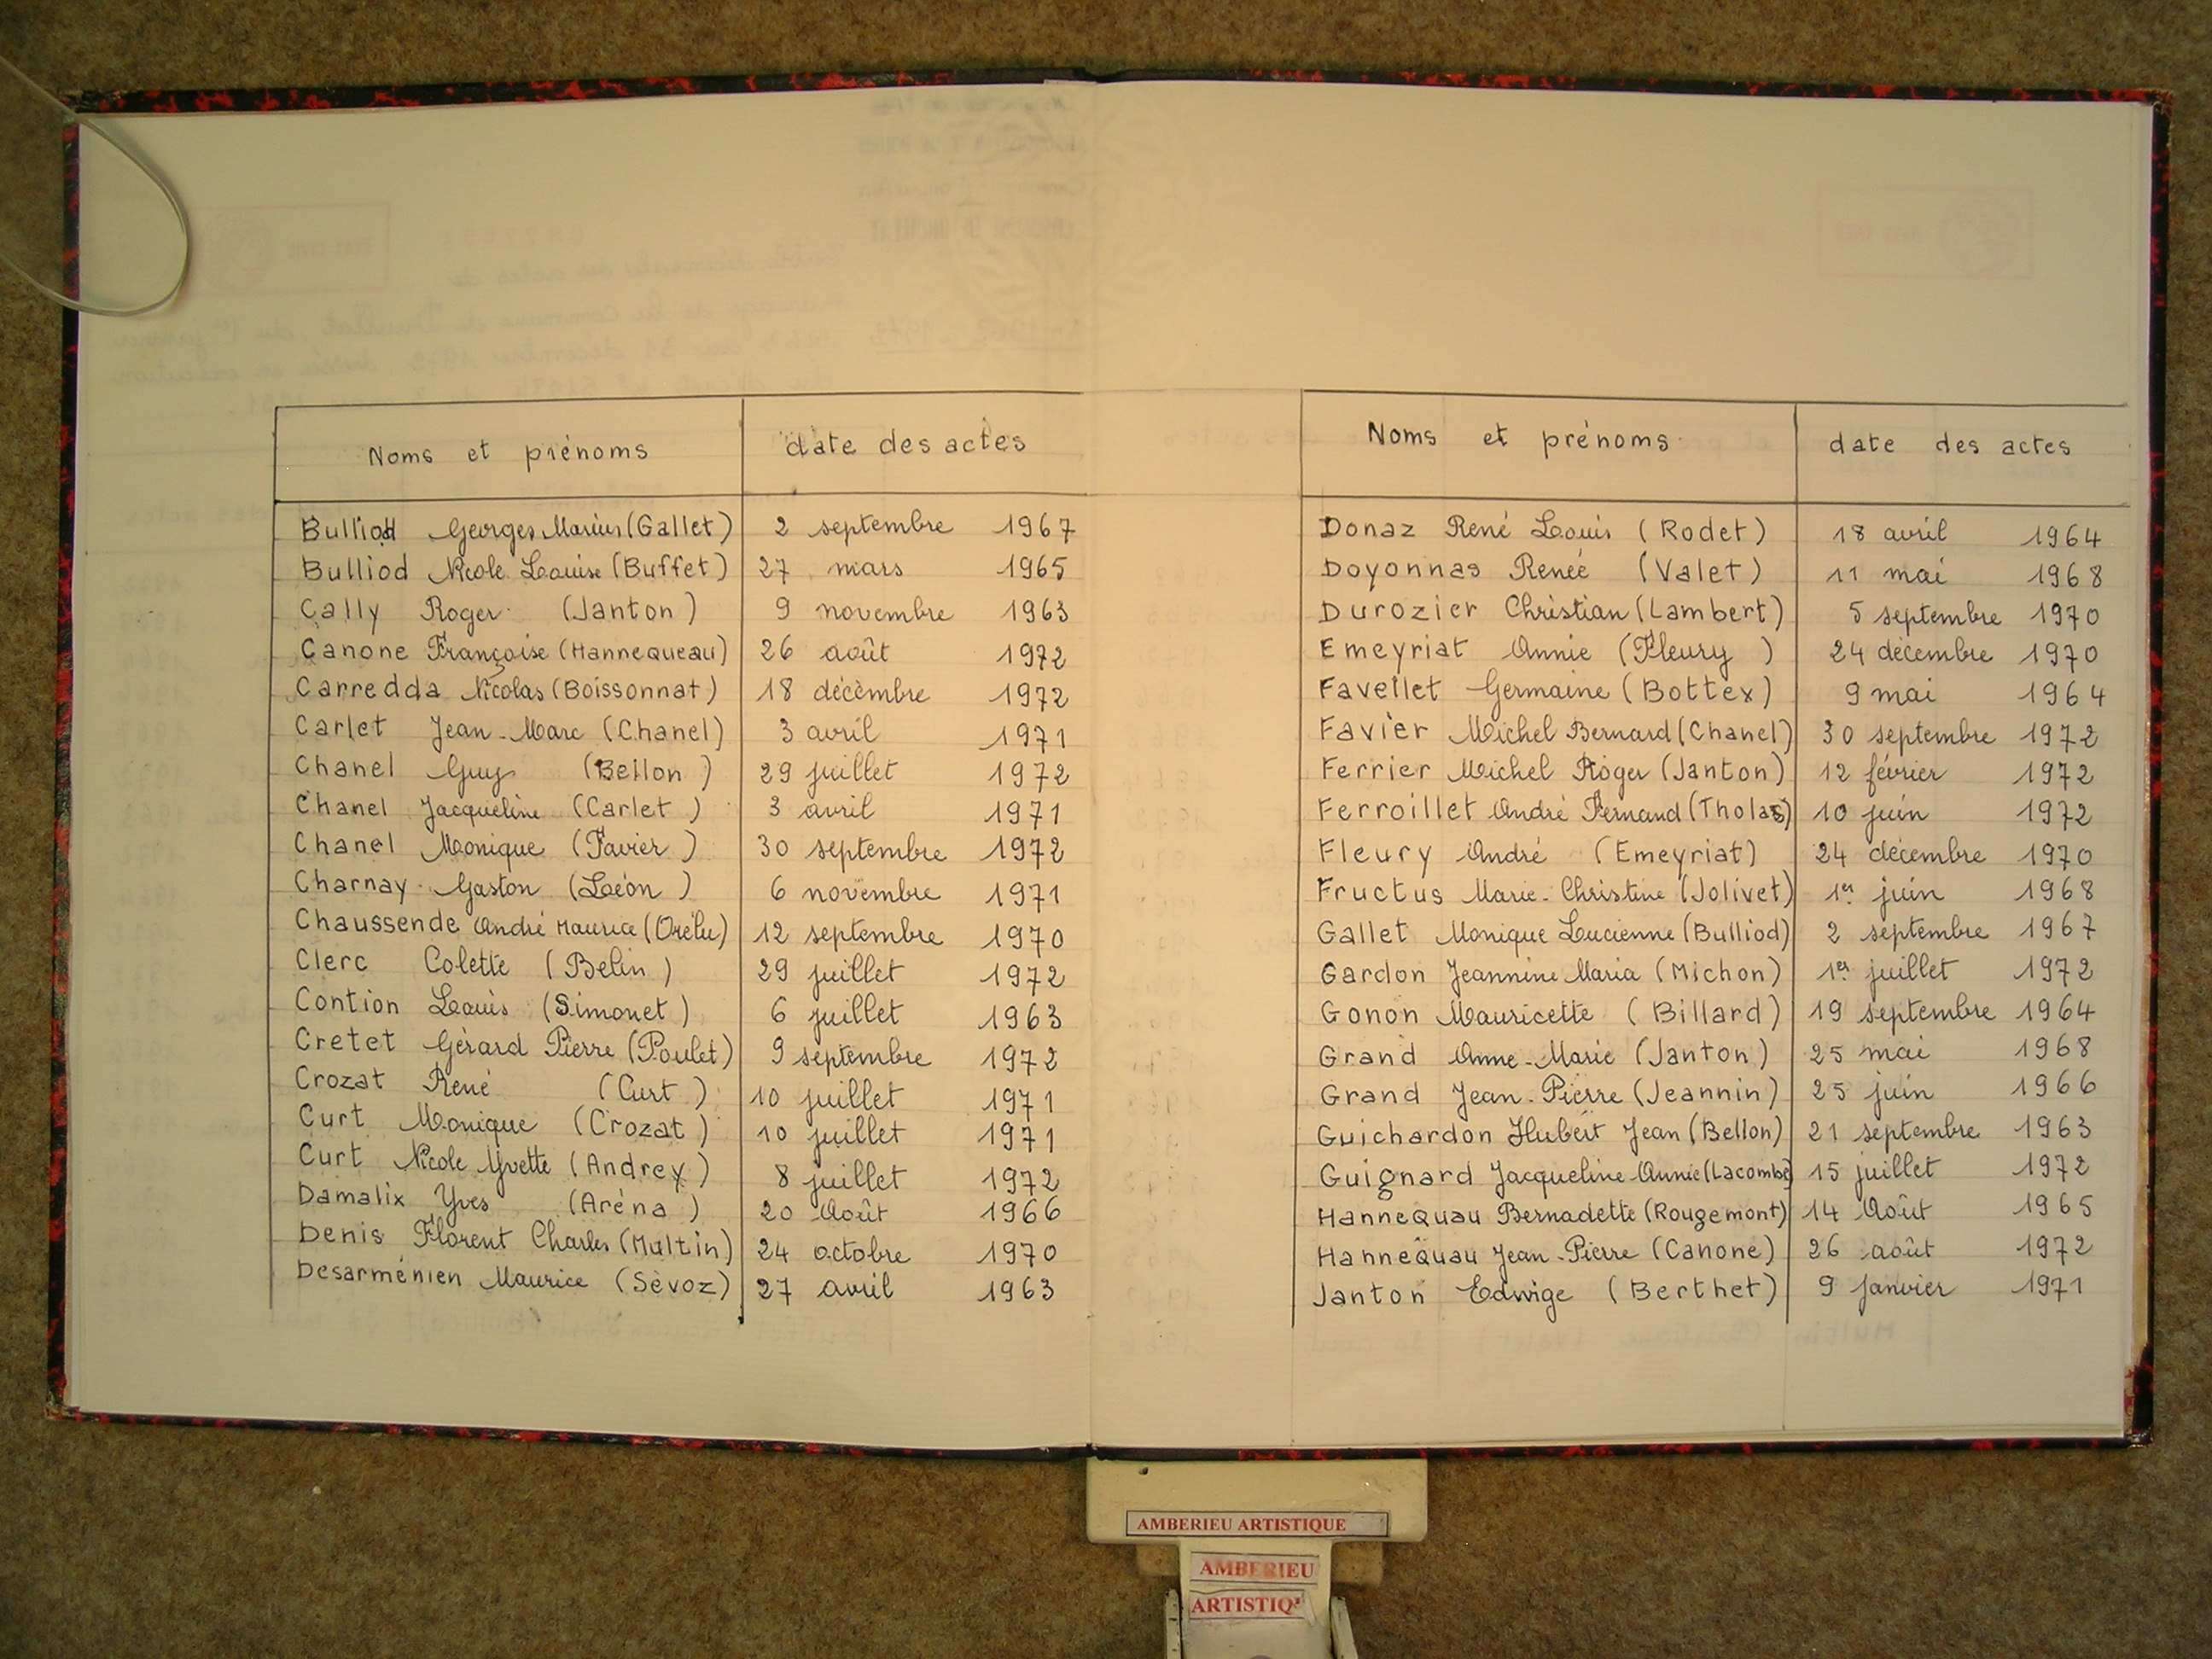 Noms et prénoms date des actes
Bulliod Georges Marius (Gallet) 2 septembre 1967
Bulliod Nicole Louise (Buffet) 27 mars 1965
Cally Roger (Janton) 9 novembre 1963
Canone Françoise (Hannequeau) 26 août 1972
Carredda Nicolas (Boissonnat) 18 décèmbre 1972
Carlet Jean-Marc (Chanel) 3 avril 1971
Chanel Guy (Bellon) 29 juillet 1972
Chanel Jacqueline (Carlet) 3 avril 1971
Chanel Monique (Favier) 30 septembre 1972
Charnay Gaston (Léon) 6 novembre 1971
Chaussende André Maurice (Orélu) 12 septembre 1970
Clerc Colette (Belin) 29 juillet 1972
Contion Louis (Simonet) 6 juillet 1963
Cretet Gérard Pierre (Poulet) 9 septembre 1972
Crozat René (Curt) 10 juillet 1971
Curt Monique (Crozat) 10 juillet 1971
Curt Nicole Yvette (Andrey) 8 juillet 1972
Damalix Yves (Aréna) 20 Août 1966
Denis Florent Charles (Multin) 24 octobre 1970
Desarménien Maurice (Sévoz) 27 avril 1963
Noms et prénoms date des actes
Donaz René Louis (Rodet) 18 avril 1964
Doyonnas Renée (Valet) 11 mai 1968
Durozier Christian (Lambert) 5 septembre 1970
Emeyriat Annie (Fleury) 24 décembre 1970
Favellet Germaine (Bottex) 9 mai 1964
Favier Michel Bernard (Chanel) 30 septembre 1972
Ferrier Michel Roger (Janton) 12 février 1972
Ferroillet André Fernand (Tholas) 10 juin 1972
Fleury André (Emeyriat) 24 décembre 1970
Fructus Marie-Christine (Jolivet) 1er juin 1968
Gallet Monique Lucienne (Bulliod) 2 septembre 1967
Gardon Jeannine Maria (Michon) 1er juillet 1972
Gonon Mauricette (Billard) 19 septembre 1964
Grand Anne-Marie (Janton) 25 mai 1968
Grand Jean-Pierre (Jeannin) 25 juin 1966
Guichardon Hubert Jean (Bellon) 21 septembre 1963
Guignard Jacqueline-Annie (Lacombe) 15 juillet 1972
Hannequau Bernadette (Rougemont) 14 Août 1965
Hannequau Jean-Pierre (Canone) 26 août 1972
Janton Edwige (Berthet) 9 janvier 1971
AMBERIEU ARTISTIQUE
AMBERIEU